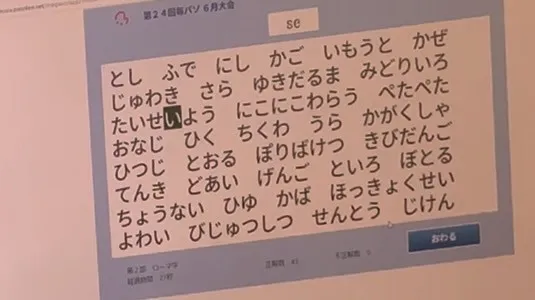 第24回毎パソ 6月大会
se
とし ふで にし かご いもうと かぜ
じゅわき さら ゆきだるま みどりいろ
たいせいよう にこにこわらう ぺたぺた
おなじ ひく ちくわ うら かがくしゃ
ひつじ とおる ぽりばけつ きびだんご
てんき どあい げんご といろ ぼとる
ちょうない ひゆ かば ほっきょくせい
よわい びじゅつしつ せんとう じけん
おわる
第2部 ローマ字
正解数
不正解数
経過時間